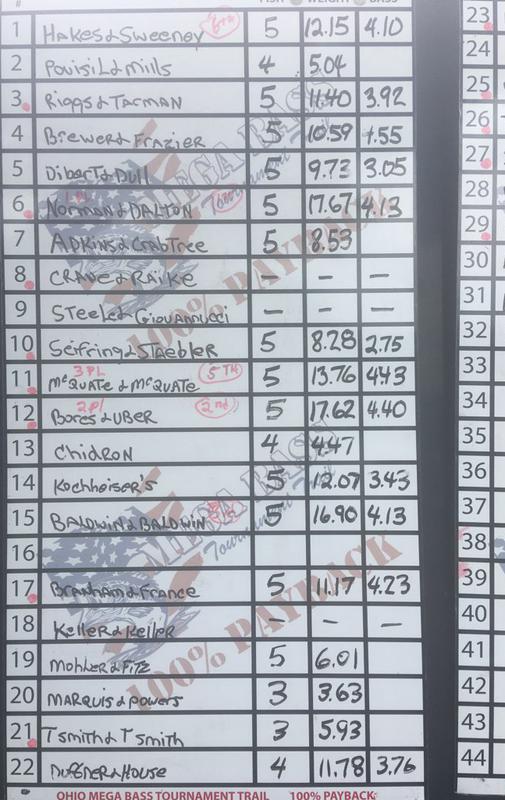 # FISH WEIGHT BASS
1 Hakes & Sweeney 6th 5 12.15 4.10
2 Pouisil & Mills 4 5.04
3 Riggs & Tarman 5 11.40 3.92
4 Brewer & Frazier 5 10.59 4.55
5 Dibert & Dull 5 9.73 3.05
6 Norman & DALTON 5 17.67 4.13
7 ADKINS & CrabTree 5 8.53
8 CRANE & RAIKE – – –
9 STeele & GIOVANNUCCI – – –
10 Seifring & STAebler 5 8.28 2.75
11 3PL McQUATE & McQUATE 5TH 5 13.76 4.43
12 2pl Bores & UBER 2nd 5 17.62 4.40
13 ChiDRON 4 4.47
14 Kochheiser's 5 12.07 3.43
15 BALDWIN & BALDWIN 5 16.90 4.13
16
17 Branham & France 5 11.17 4.23
18 Keller & Keller – – –
19 Mohler & FiTz 5 6.01
20 MARQUIS & Powers 3 3.63
21 T smith & T smith 3 5.93
22 & HOUSE 4 11.78 3.76
MEGA BASS
Tournament Trail
100% PAYBACK
MEGA BASS
Tournament
100% PAYBACK
OHIO MEGA BASS TOURNAMENT TRAIL 100% PAYBACK
23
24
25
26
27
28
29
30
31
32
33
34
35
36
37
38
39
40
41
42
43
44